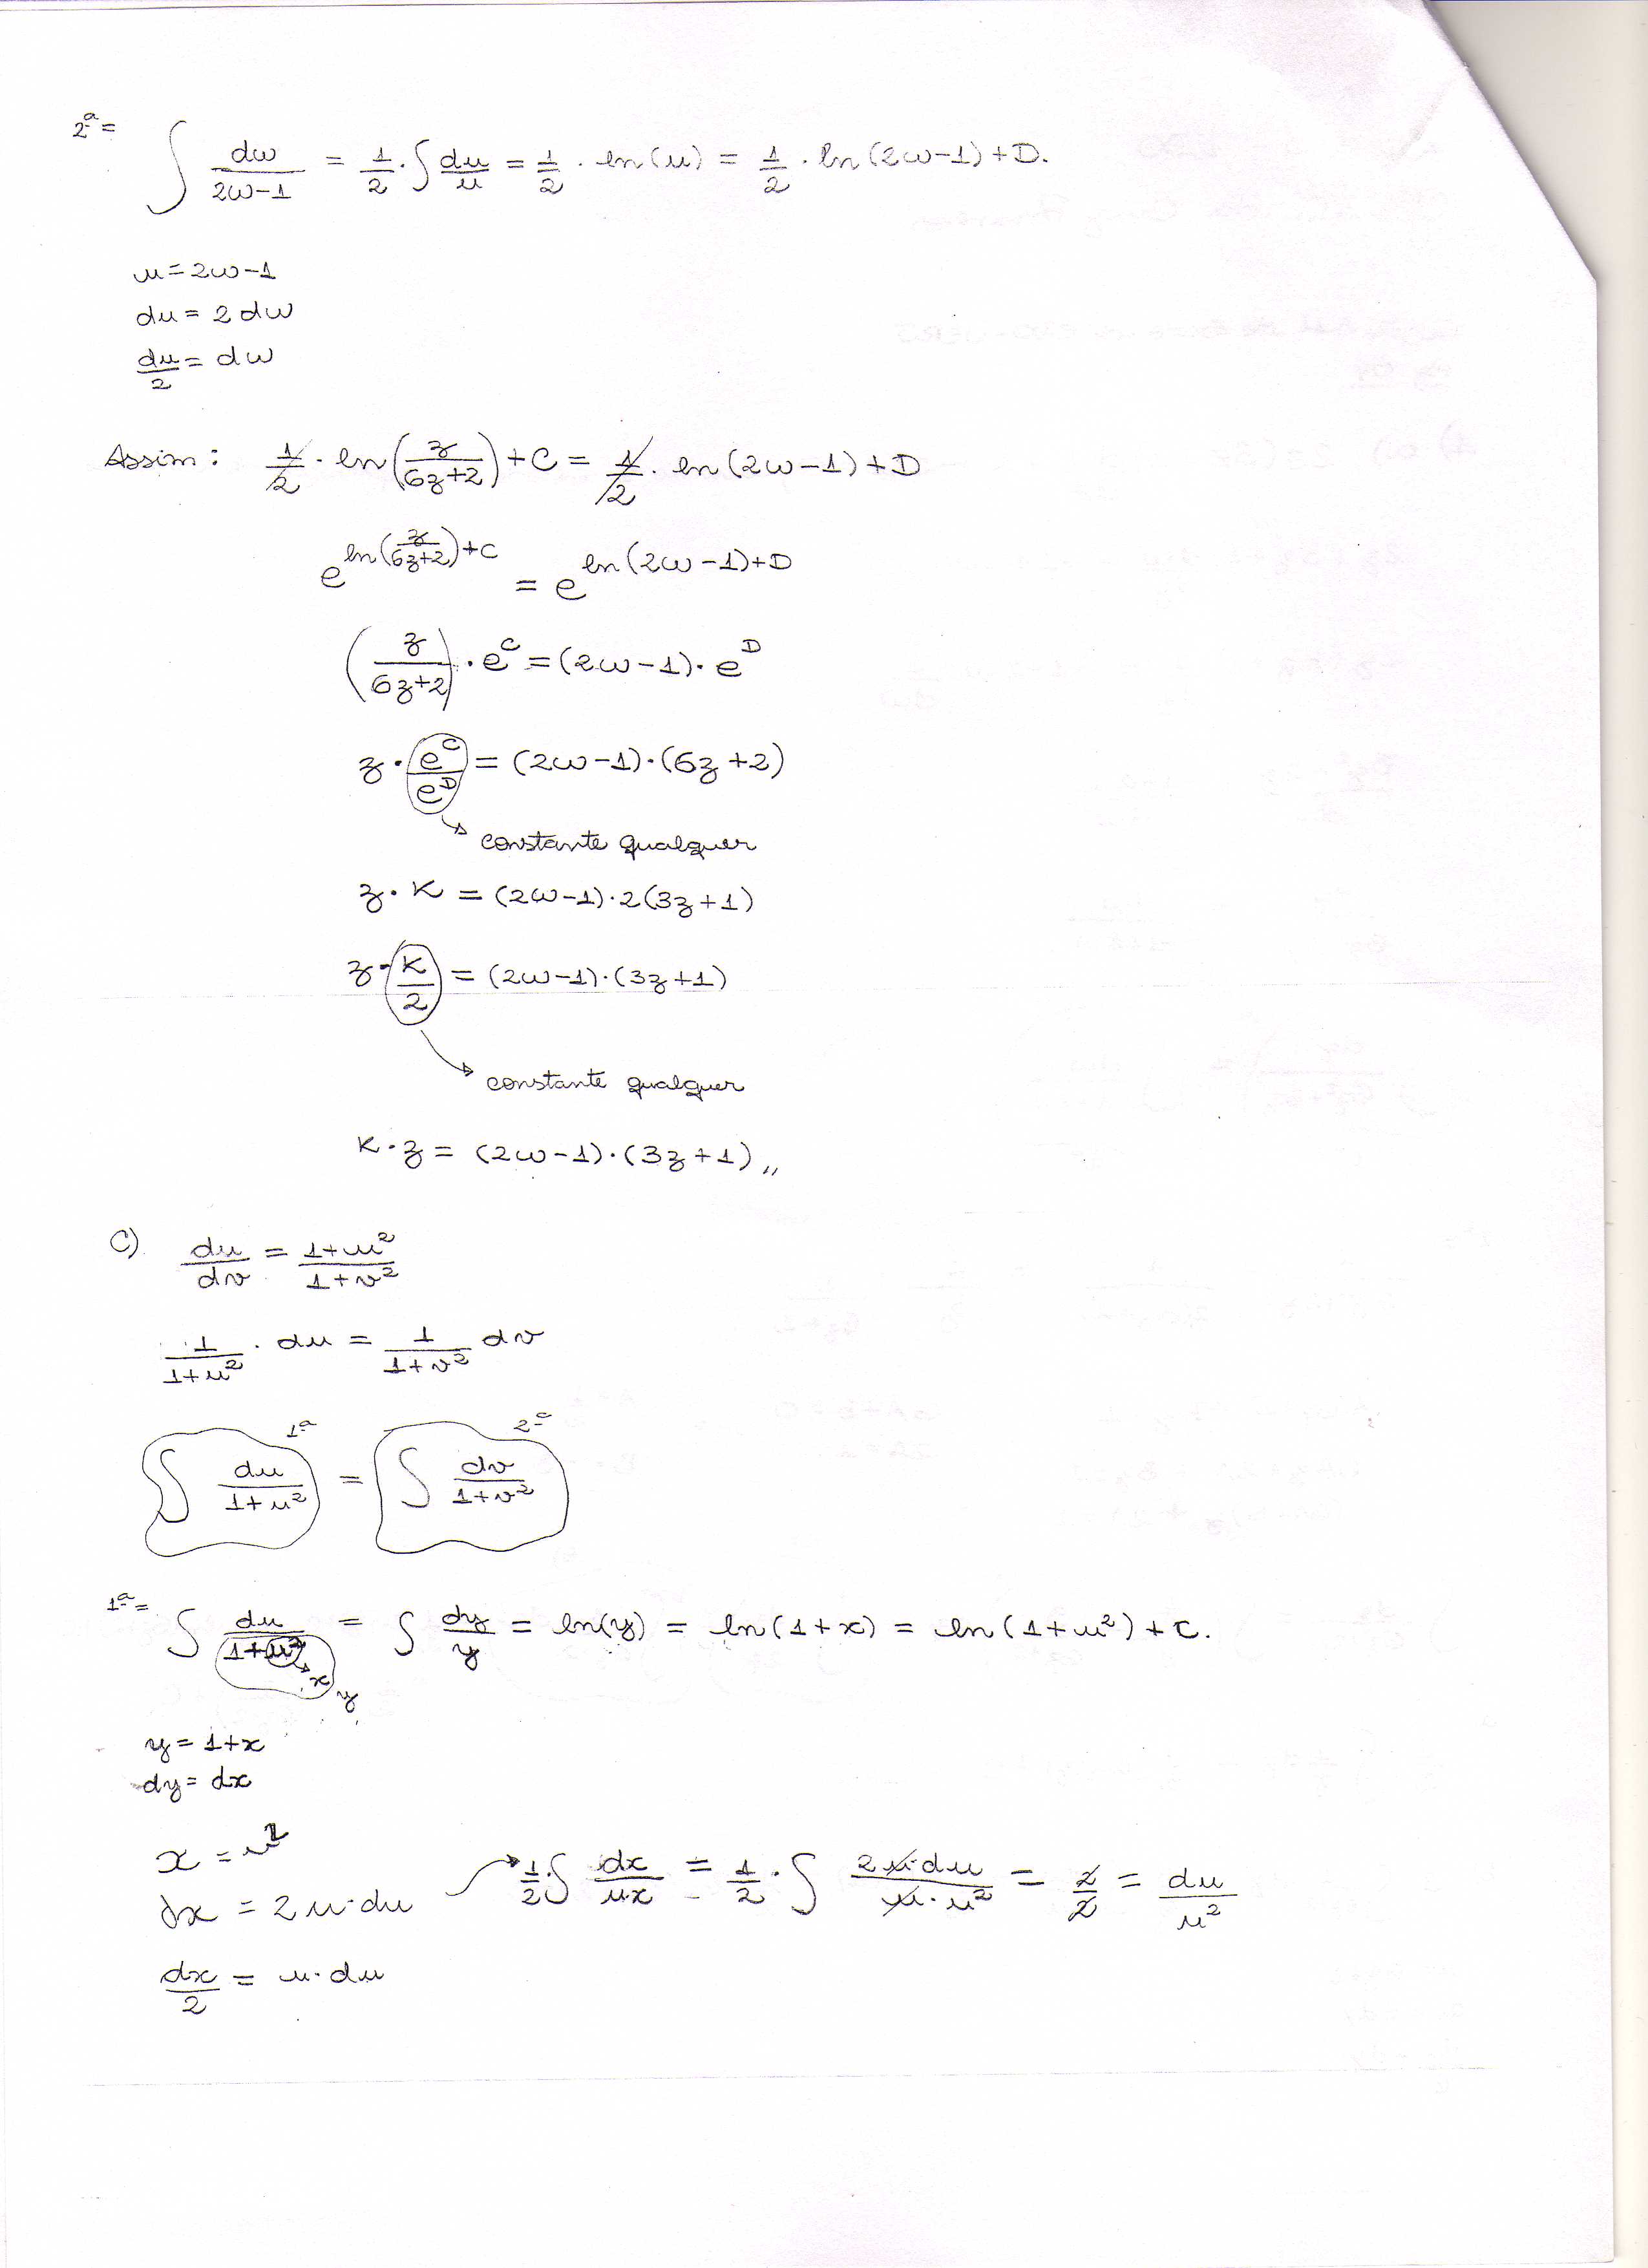 2ª = ∫ dω/(2ω-1) = 1/2 · ∫ du/u = 1/2 · ln(u) = 1/2 · ln(2ω-1) + D.
u = 2ω-1
du = 2 dω
du/2 = dω
Assim: 1/2 · ln(z/(6z+2)) + C = 1/2 · ln(2ω-1) + D
e^(ln(z/(6z+2))+C) = e^(ln(2ω-1)+D)
(z/(6z+2)) · e^C = (2ω-1) · e^D
z · e^C/e^D = (2ω-1) · (6z+2)
constante qualquer
z · K = (2ω-1) · 2(3z+1)
z · K/2 = (2ω-1) · (3z+1)
constante qualquer
K · z = (2ω-1) · (3z+1) ,,
C) du/dv = (1+u²)/(1+v²)
1/(1+u²) · du = 1/(1+v²) dv
1ª 2ª
∫ du/(1+u²) = ∫ dv/(1+v²)
1ª = ∫ du/(1+u²) = ∫ dy/y = ln(y) = ln(1+x) = ln(1+u²) + C.
x
y
y = 1+x
dy = dx
x = u²
dx = 2u·du 1/2 · ∫ dx/(u·x) = 1/2 · ∫ 2u·du/(u·u²) = 2/2 = du/u²
dx/2 = u·du